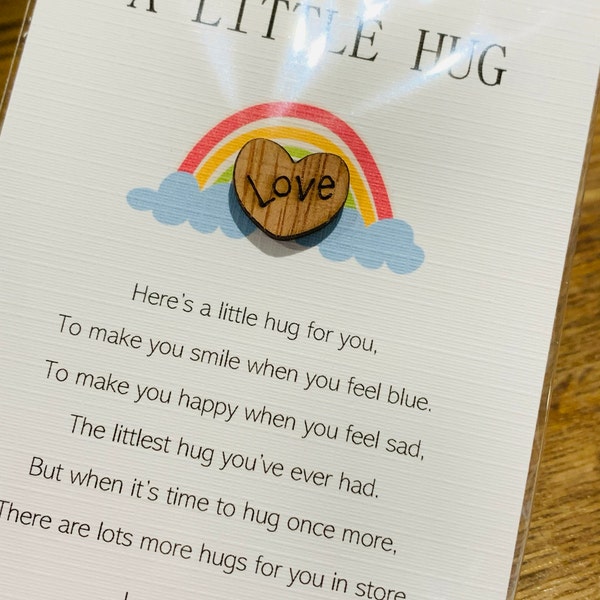 A LITTLE HUG
Love
Here's a little hug for you,
To make you smile when you feel blue.
To make you happy when you feel sad,
The littlest hug you've ever had.
But when it's time to hug once more,
There are lots more hugs for you in store